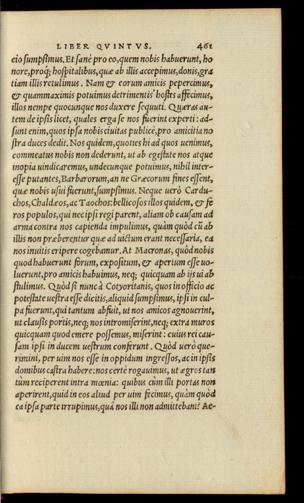 LIBER QVINTVS. 461
cio sumpsimus. Et sanè pro eo, quem nobis habuerunt, ho
nore, proq; hospitalibus, quæ ab illis accepimus, donis, gra
tiam illis retulimus. Nam & eorum amicis pepercimus,
& quammaximis potuimus detrimentis hostes affecimus,
illos nempe quocunque nos duxere sequuti. Quæras au-
tem de ipsis licet, quales erga se nos fuerint experti: ad-
sunt enim, quos ipsa nobis ciuitas publicè, pro amicitia no
stra duces dedit. Nos quidem, quoties hi ad quos uenimus,
commeatus nobis non dederunt, ut ab egestate nos atque
inopia uindicaremus, undecunque potuimus, nihil inter-
esse putantes, Barbarorum, an ne Græcorum fines essent,
quæ nobis usui fuerunt, sumpsimus. Neque uerò Cardu-
chos, Chaldæos, ac Taochos: bellicosos illos quidem, & fe
ros populos, qui nec ipsi regi parent, aliam ob causam ad
arma contra nos capienda impulimus, quàm quòd cũ ab
illis non præberentur quæ ad uictum erant necessaria, ea
nos inuitis eripere cogebamur. At Macronas, quòd nobis
quod habuerunt forum, expositum, & apertum esse uo-
luerunt, pro amicis habuimus, neq; quicquam ab ijs ui ab
stulimus. Quòd si nunc à Cotyoritanis, quos in officio ac
potestate uestra esse dicitis, aliquid sumpsimus, ipsi in cul-
pa fuerunt, qui tantum abfuit, ut nos amicos agnouerint,
ut clausis portis, neq; nos intromiserint, neq; extra muros
quicquam quod emere possemus, miserint: cuius rei cau-
sam ipsi in ducem uestrum conferunt. Quòd uerò que-
rimini, per uim nos esse in oppidum ingressos, ac in ipsis
domibus castra habere: nos certè rogauimus, ut ægros tan
tùm reciperent intra mœnia: quibus cùm illi portas non
aperirent, quid in eos aliud per uim fecimus, quàm quòd
ea ipsa parte irrupimus, quà nos illi non admittebant? Ae-